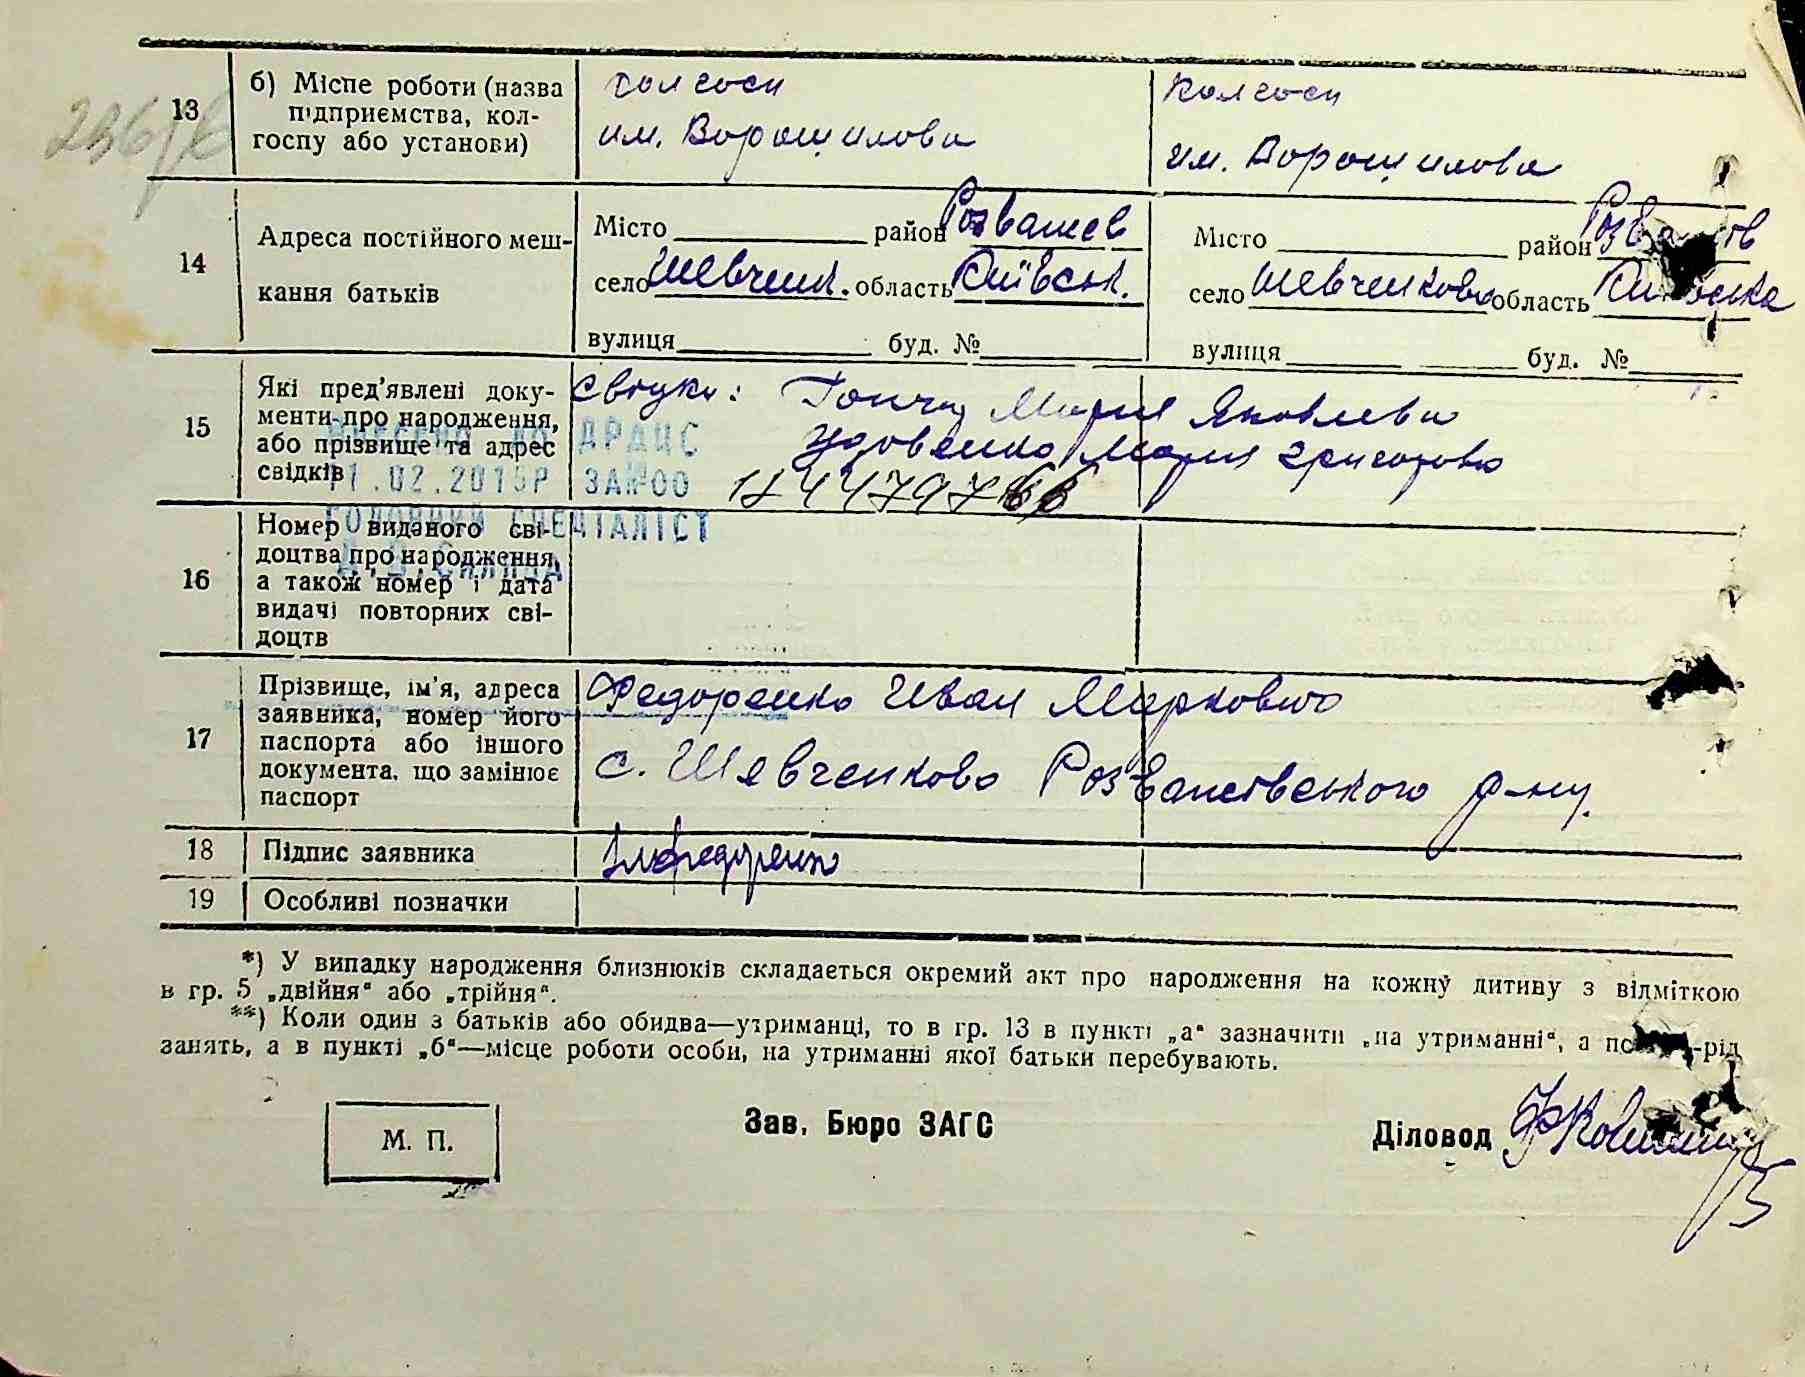 13
б) Місце роботи (назва
підприємства, кол-
госпу або установи)
колгосп
им. Ворошилова
колгосп
им. Ворошилова
14
Адреса постійного меш-
кання батьків
Місто район Розважев
село Шевченк. область Київськ.
вулиця буд. №
Місто район
село Шевченково область
вулиця буд. №
15
Які пред'явлені доку-
менти про народження,
або прізвище та адрес
свідків
Свідки: Гончар Мария Яковлевна
Удовенко Мария Григоровна
ДРАЦС
11.02.2015Р ЗА №00
ГОЛОВНИЙ СПЕЦІАЛІСТ
16
Номер виданого сві-
доцтва про народження,
а також номер і дата
видачі повторних сві-
доцтв
17
Прізвище, ім'я, адреса
заявника, номер його
паспорта або іншого
документа, що замінює
паспорт
Федоренко Иван Маркович
с. Шевченково Розважевського р-ну.
18
Підпис заявника
19
Особливі позначки
*) У випадку народження близнюків складається окремий акт про народження на кожну дитину з відміткою
в гр. 5 „двійня“ або „трійня“.
**) Коли один з батьків або обидва—утриманці, то в гр. 13 в пункті „а“ зазначити „на утриманні“, а -рід
занять, а в пункті „б“—місце роботи особи, на утриманні якої батьки перебувають.
М. П.
Зав. Бюро ЗАГС
Діловод